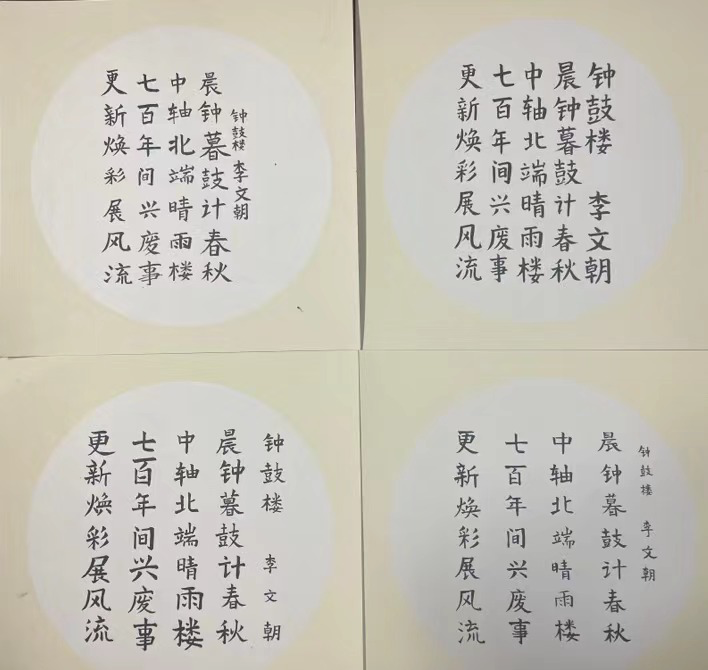 钟鼓楼 李文朝
晨钟暮鼓计春秋
中轴北端晴雨楼
七百年间兴废事
更新焕彩展风流
钟鼓楼 李文朝
晨钟暮鼓计春秋
中轴北端晴雨楼
七百年间兴废事
更新焕彩展风流
钟鼓楼 李文朝
晨钟暮鼓计春秋
中轴北端晴雨楼
七百年间兴废事
更新焕彩展风流
钟鼓楼 李文朝
晨钟暮鼓计春秋
中轴北端晴雨楼
七百年间兴废事
更新焕彩展风流